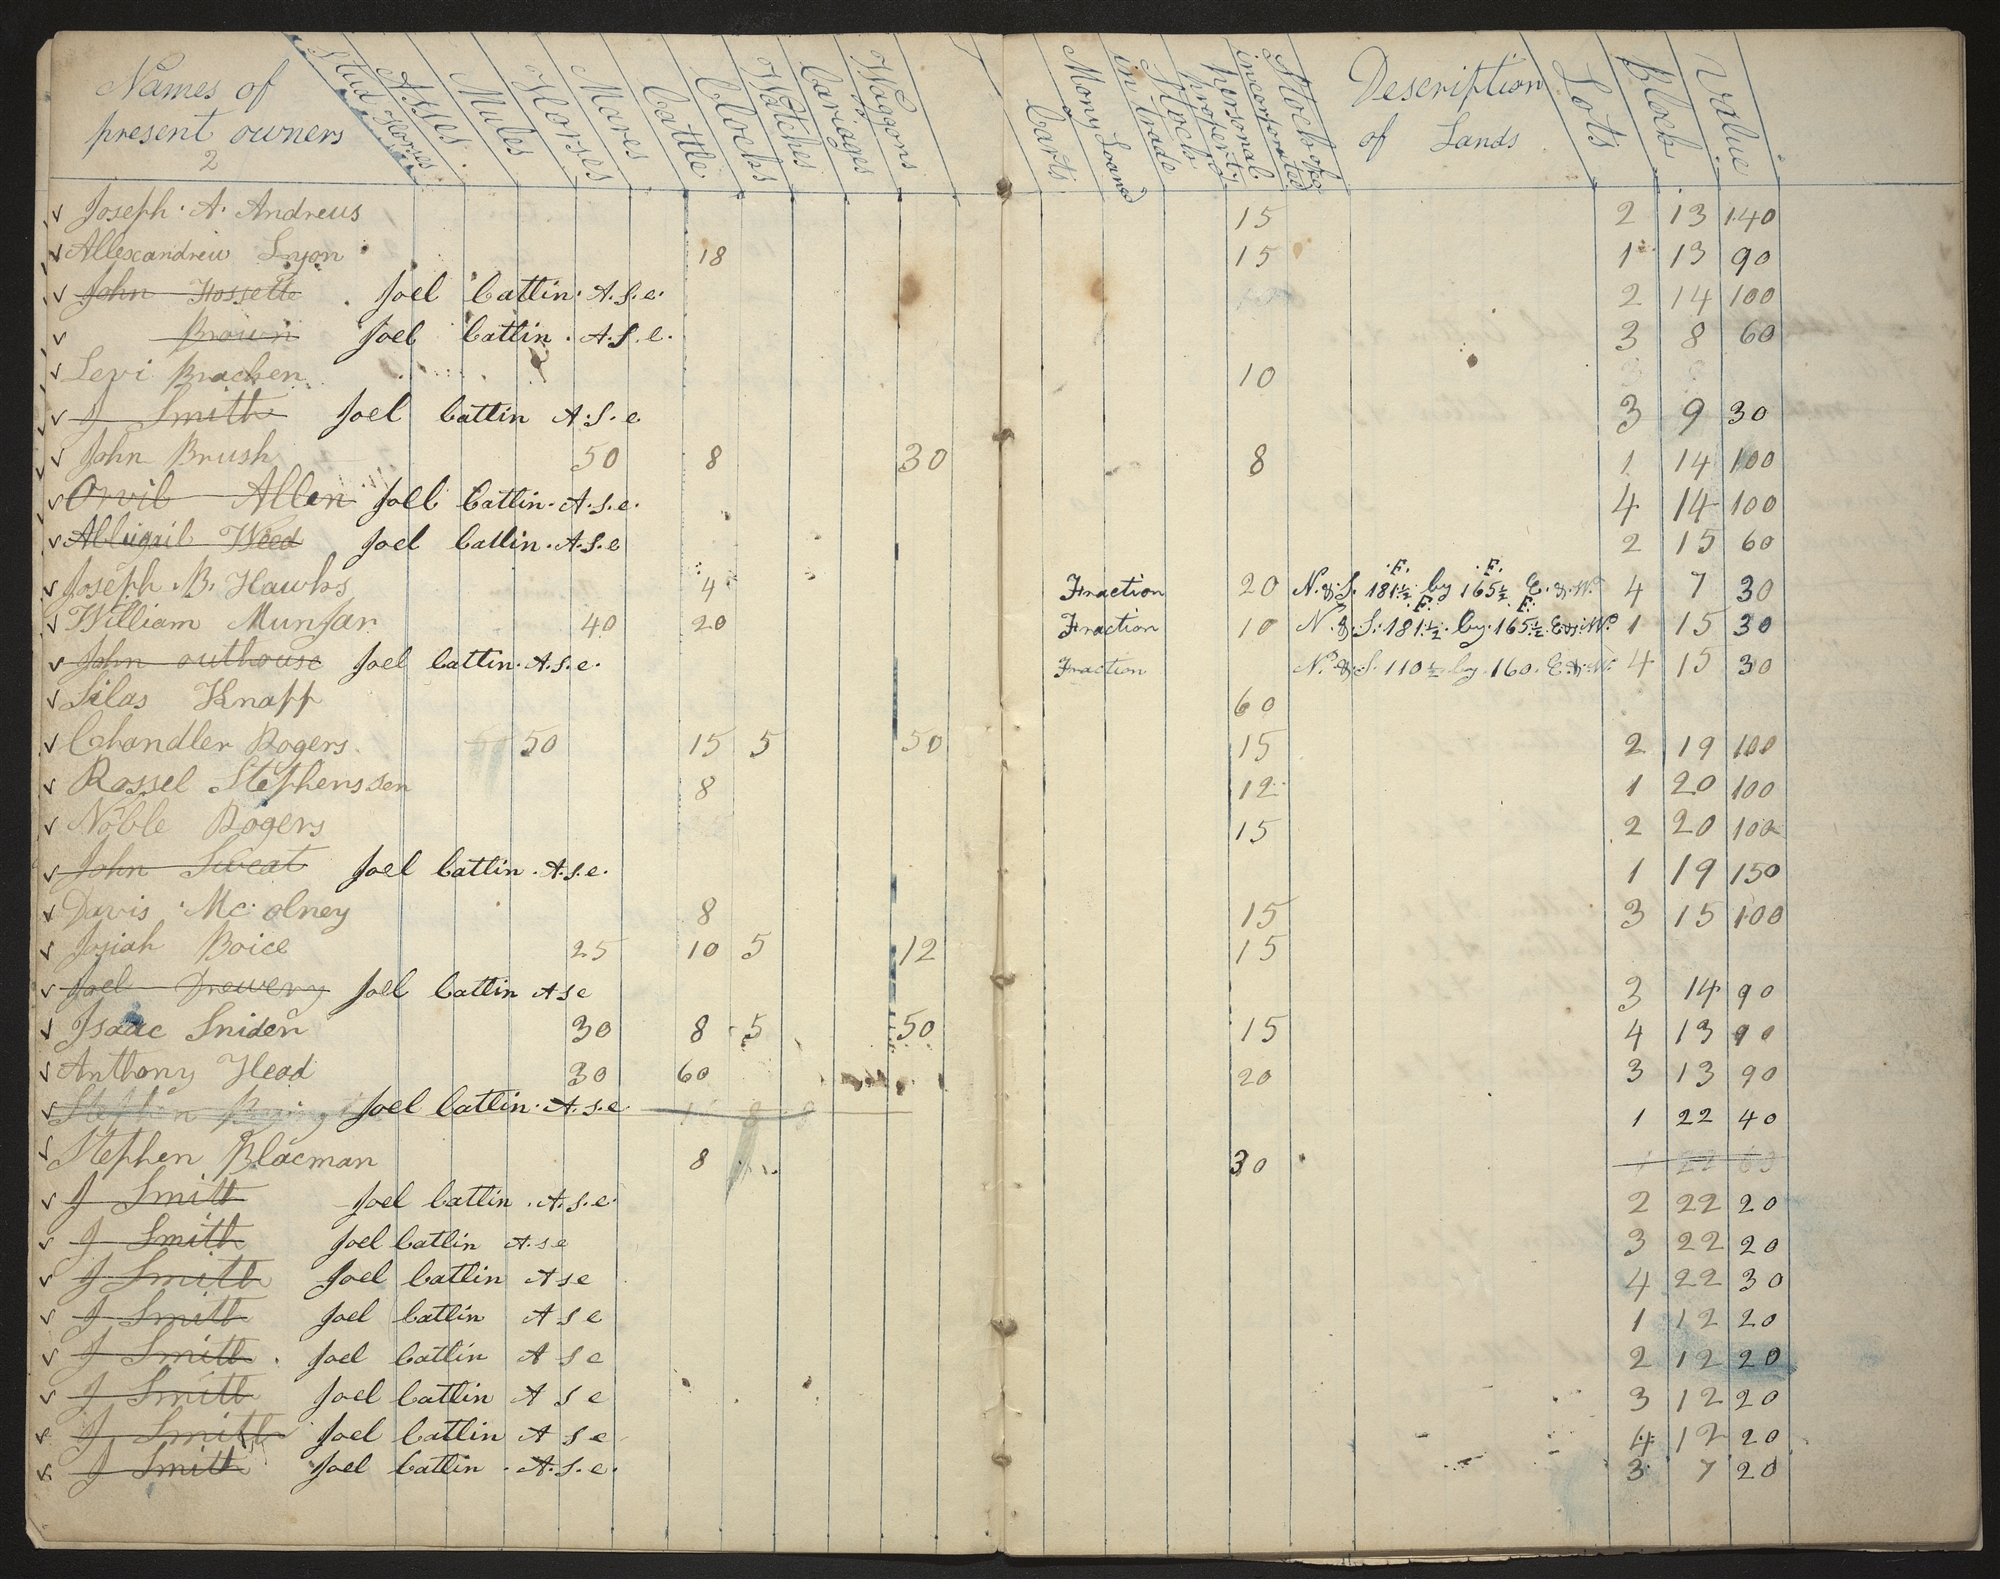 Names of present owners 2 | Stud Horses | Asses. | Mules | Horses | Mares | Cattle | Clocks | Watches | Cariages | Waggons | Carts | Mony Loaned | Stock in trade | personal property | Stock of incorporated | Description of Lands | Lots | Block | Value
v Joseph A. Andreus 15 2 13 140
v Allexandreu Lyon 18 15 1 13 90
v John Hossette . Joel Catlin. A.S.e. 2 14 100
v Brown Joel Catlin. A.S.e. 3 8 60
v Levi Bracken 10
v J Smith Joel Catlin A.S.e 3 9 30
v John Brush 50 8 30 8 1 14 100
v Orvil Allen Joel Catlin. A.S.e. 4 14 100
v Abbigail Weed Joel Catlin. A.S.e 2 15 60
v Joseph B. Hawks 4 Fraction 20 N. & S. 181½ F. by 165½ F. E. & W. 4 7 30
v William Munsar 40 20 Fraction 10 N. & S. 181½ F. by 165½ F. E. & W. 1 15 30
v John outhouse Joel Catlin. A.S.e. Fraction N. & S. 110½ by 160. E. & W. 4 15 30
v Silas Knapp 60
v Chandler Rogers. 50 15 5 50 15 2 19 100
v Rossel Stephenssen 8 12 1 20 100
v Noble Rogers 15 2 20 100
v John Sweat Joel Catlin. A.S.e. 1 19 150
v Davis Mc olney 8 15 3 15 100
v Josiah Boice 25 10 5 12 15
v Joel Drewery Joel Catlin A S e 3 14 90
v Isaac Sniden 30 8 5 50 15 4 13 90
v Anthony Head 30 60 20 3 13 90
v Stephen Joel Catlin. A.S.e 1 22 40
v Stephen Blacman 8 30 1 22
v J Smith Joel Catlin. A.S.e. 2 22 20
v J Smith Joel Catlin A.S e 3 22 20
v J Smith Joel Catlin A S e 4 22 30
v J Smith Joel Catlin A S e 1 12 20
v J Smith. Joel Catlin A S e 2 12 20
v J Smith Joel Catlin A S e 3 12 20
v J Smith Joel Catlin A S e 4 12 20
v J Smith Joel Catlin. A.S.e. 3 7 20